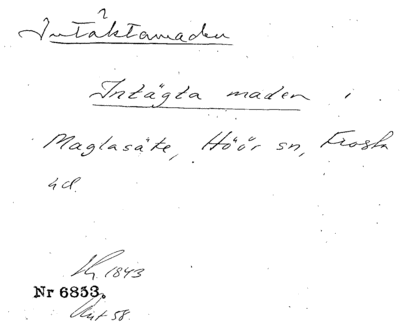 ?
Intäktamaden
Intägta maden i
Maglasäte, Höör sn, Frosta
hd.
1843
Nr 6853.
58.